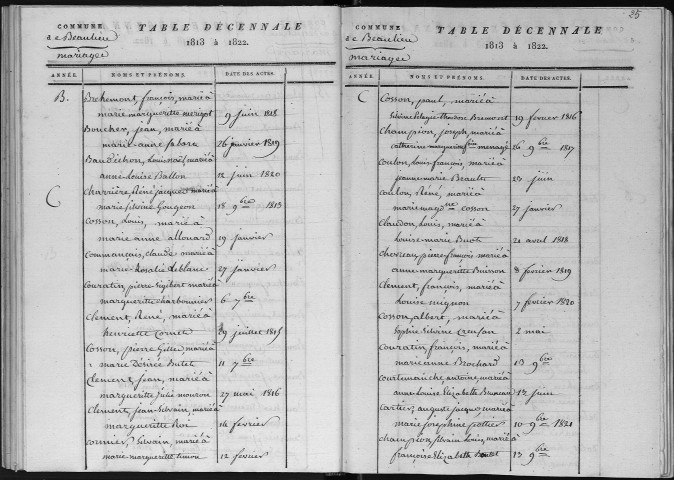 COMMUNE
de Beaulieu
mariages
TABLE DÉCENNALE
1813 à 1822.
ANNÉE.
NOMS ET PRÉNOMS.
DATE DES ACTES.
B.
Brehemont, françois, marié à
marie marguerite 9 juin 1818
Boucher, jean, marié à
marie-anne 26 janvier 1819
Baudichon, Louis noël, marié à
anne Louise Ballon 12 juin 1820
C
Charrière, René jacques marié à
marie Silvine Gougeon 18 9bre 1813
Cosson, Louis, marié à
marie anne allouard 19 janvier
Commançais, claude marié à
marie-Rosalie Leblanc 27 janvier
Couratin, pierre Sigibert marié à
marguerite charbonnier 6 7bre
Clement, René, marié à
henriette Cornet 29 juillet 1815
Cosson, pierre Gilles, marié à
marie Désirée Butet 11 7bre
Clement, jean, marié à
marguerite Julie mouzon 27 mai 1816
Clement, jean-Silvain, marié à
marguerite Roi 14 février
cormier, Silvain, marié à
marie-marguerite 12 février
25
COMMUNE
de Beaulieu
mariages
TABLE DÉCENNALE
1813 à 1822.
ANNÉE.
NOMS ET PRÉNOMS.
DATE DES ACTES.
C
Cosson, paul, marié à
Silvine Pelagie-theodore Bremont 19 février 1816
Champion, joseph, marié à
catherine 26 9bre 1817
Coulon, Louis-françois, marié à
jeanne-marie 23 juin
Coulon, René, marié à
marie magdne cosson 27 janvier
Claudon, Louis, marié à
Louise-marie 21 avril 1818
Chevreau, pierre-françois, marié à
anne-marguerite Buisson 8 février 1819
Clement, françois, marié à
Louise mignon 7 février 1820
Cosson, albert, marié à
Sophie Silvine 2 mai
Couratin, françois, marié à
marie anne Brochard 13 9bre
Courtemanche, antoine, marié à
anne-Louise Elizabeth Bruneau 12 juin
Cartier, auguste jacques, marié à
marie josephine pottier 10 9bre 1821
Champion Silvain Louis, marié à
françoise Elizabeth 13 9bre